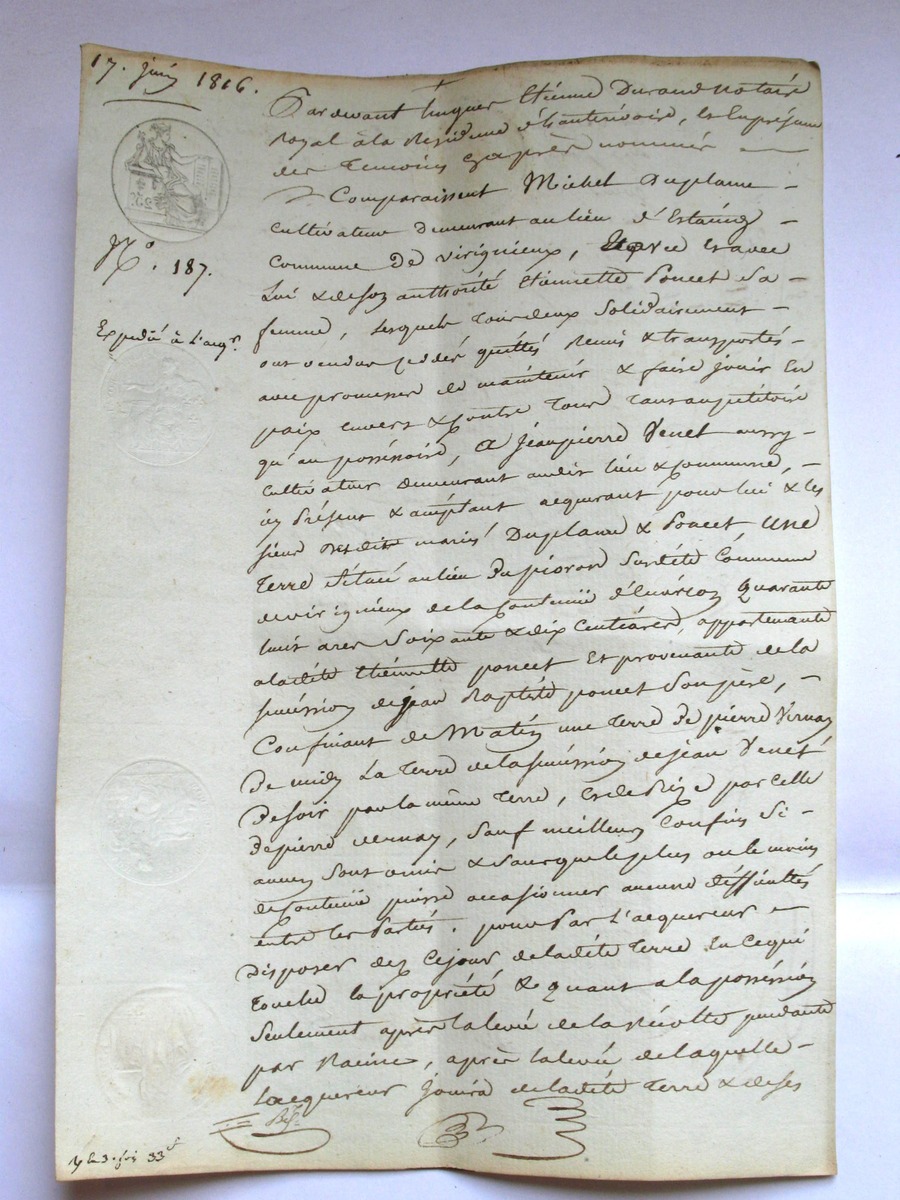 17. Juin 1816.
N.º 187.
Expedié à L'acqr.
Pardevant Etienne Durand Notaire
Royal à la Residence, et En présence
des Temoins Cy après nommés
Comparaissent Michel Duplame
Cultivateur Demeurant au lieu d'Estaing
Commune De virignieux, et avec
Lui & de son authorité Etiennette Poncet Sa
femme, Lesquels Tous deux Solidairement
ont vendus, ceddés quittés remis & transportés
avec promesse de maintenir & faire jouir En
paix envers & Contre Tous Tans au pétitoire
qu'au posséssoire, A Jeanpierre Venet aussy
Cultivateur Demeurant audit lieu & Commune,
icy Présent & acceptant acquerant pour lui & les
siens desdits mariés Duplame & Poncet, une
Terre située au lieu Du pioron Surdité Commune
de virignieux de la Contenüe d'Environ Quarante
huit ares Soixante & dix Centiares, appartenante
à ladité Etiennette poncet Et provenante de la
succéssion de jean Baptiste poncet Son père,
Confinant de Matin une Terre De pierre Vernay
De midy La Terre de la succéssion de jean Venet
De soir par la même Terre, et de Bize par Celle
de pierre vernay, Sauf meilleurs Confins Si
aucuns Sont & Sans que le plus ou le moins
de Contenüe puisse occasionner aucune difficultés
entre les Parties. pour Par L'acquereur
Disposer dez Cejour de ladité Terre En Cequi
Touche la propriété & quant a la posséssion
Seulement après la levée de la Récolte pendante
par Racines, après la levée de laquelle
Lacquereur Jouira de ladité Terre & de ses